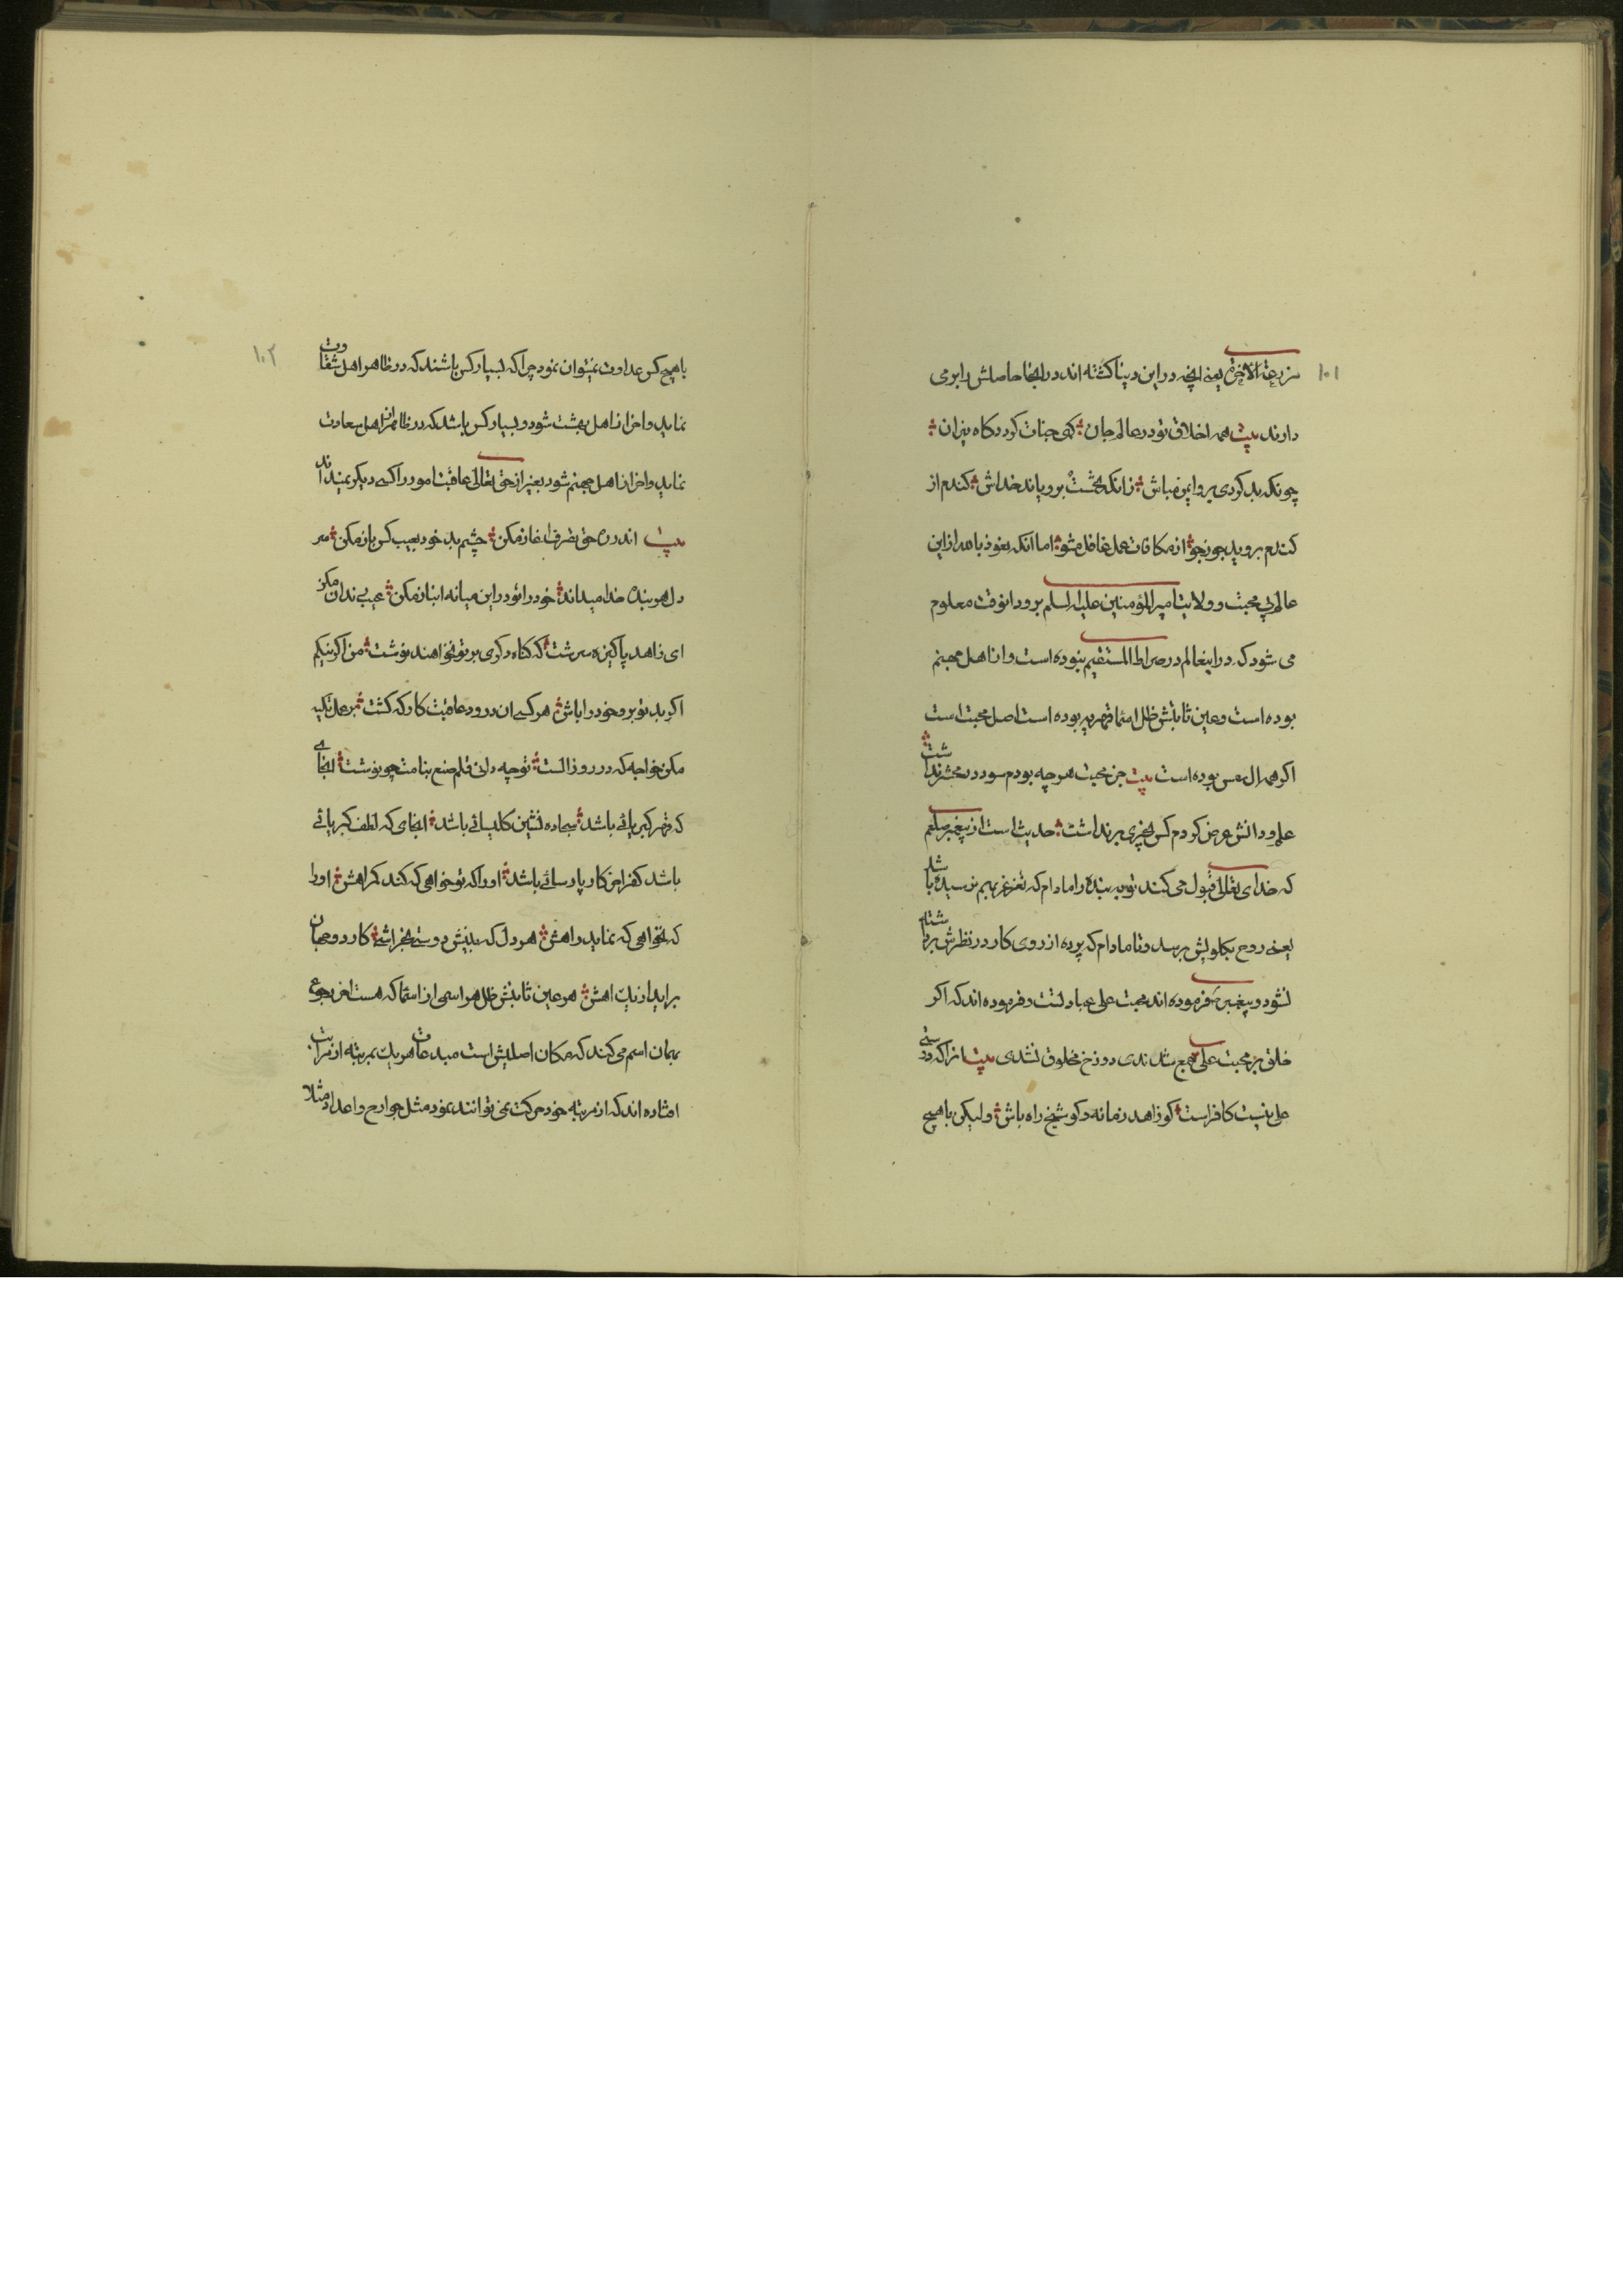 ۱۰۱
مزرعة الاخرة یعنی انچه در این دنیا کشته اند در انجا حاصلش را بر می
دارند بیت همه اخلاق تو در عالم جان گهی جنات گردد گاه نیران
چونکه بد کردی برو ایمن مباش زانکه تخمست برویاند خداش کندم از
کندم بروید جو ز جو از مکافات عمل غافل مشو اما انکه نعوذ بالله از این
عالم بی محبت و ولایت امیر المؤمنین علیه السلم برود انوقت معلوم
می شود که در اینعالم در صراط المستقیم نبوده است و از اهل جهنم
بوده است و عین ثابتش ظل اسما قهریه بوده است اصل محبت است
اکر همه ال عمس بوده است بیت جز محبت هر چه بودم سود در محشر نداشت
علم و دانش عرض کردم کس بچیزی بر نداشت حدیث است از پیغمبر صلعم
که خدای تعالی قبول می کند توبه بنده را مادام که تغرغر بهم نرسیده باشد
یعنی روح بکلویش نرسد و تا مادام که پرده از روی کار در نظرش برداشته
نشود و پیغمبر فرموده اند محبت علی عبادتست و فرموده اند که اکر
خلق بر محبت علی جمع شدندی دوزخ مخلوق نشدی بیت انرا که دوستی
علی نیست کافر است کو زاهد زمانه و کو شیخ راه باش و لیکن با هیچ
۱۰۲
با هیچ کس عداوت نمیتوان نمود چرا که بسیار کس باشند که در ظاهر اهل شقاوت
نماید و اخر از اهل بهشت شود و بسیار کس باشد که در ظاهر از اهل سعادت
نماید و اخر از اهل جهنم شود بغیر از حق تعالی عاقبت امور را کسی دیکر نمیداند
بیت اندر ره حق تصرف اغاز مکن چشم بد خود بعیب کس باز مکن سر
دل هر بنده خدا میداند خود را تو در این میانه انباز مکن عیب رندان مکن
ای زاهد پاکیزه سرشت که کناه دکری بر تو نخواهند نوشت من اکر نیکم
اکر بد تو برو خود را باش هر کسی ان درود عاقبت کار که کشت بر عمل تکیه
مکن خواجه که در روز الست تو چه دانی قلم صنع بنامت چو نوشت انجای
که قهر کبریائی باشد سجاده نشین کلیسائی باشد انجای که لطف کبریائی
باشد کفر اخر کار پارسائی باشد او را که تو خواهی که کند کمراهش او را
که نخواهی که نماید راهش هر دل که ببینش دوستی بخراشی کار دو جهان
براید از یک اهش هر عین ثابتش ظل هر اسمی از اسما که هست اخر رجوع
بهمان اسم می کند که مکان اصلیش است مبدعات هر یک بمرتبه از مراتب
افتاده اند که از مرتبه خود حرکت نمی توانند نمود مثل جوارح و اعداد مثلا